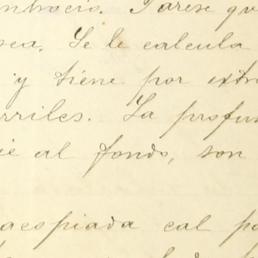 ntracis. Parese qu
sea. Se le calcula
y tiene por extr
rriles. La profu
ie al fondo, son
acespiada cal po